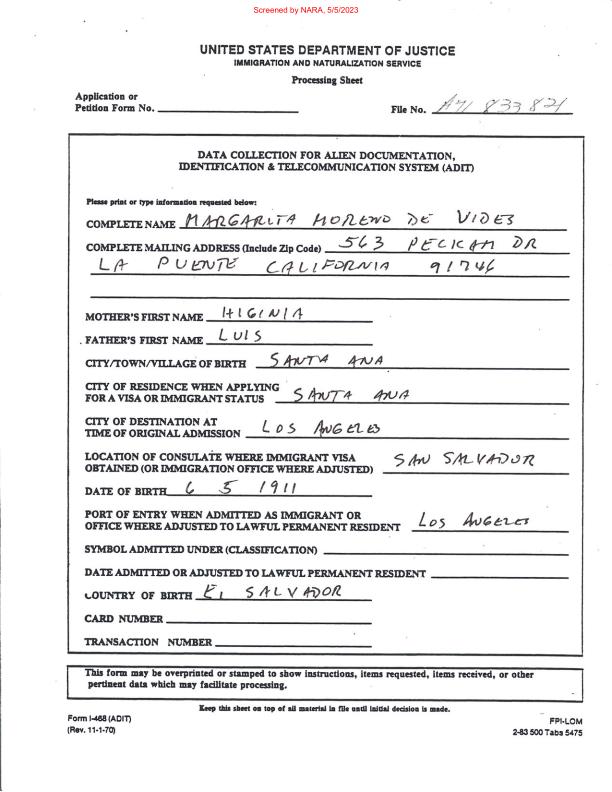 Screened by NARA, 5/5/2023
UNITED STATES DEPARTMENT OF JUSTICE
IMMIGRATION AND NATURALIZATION SERVICE
Processing Sheet
Application or
Petition Form No.
File No. A41 833 821
DATA COLLECTION FOR ALIEN DOCUMENTATION,
IDENTIFICATION & TELECOMMUNICATION SYSTEM (ADIT)
Please print or type information requested below:
COMPLETE NAME MARGARITA MORENO DE VIDES
COMPLETE MAILING ADDRESS (Include Zip Code) 563 PELICAM DR
LA PUENTE CALIFORNIA 91746
MOTHER'S FIRST NAME HIGINIA
FATHER'S FIRST NAME LUIS
CITY/TOWN/VILLAGE OF BIRTH SANTA ANA
CITY OF RESIDENCE WHEN APPLYING
FOR A VISA OR IMMIGRANT STATUS SANTA ANA
CITY OF DESTINATION AT
TIME OF ORIGINAL ADMISSION LOS ANGELES
LOCATION OF CONSULATE WHERE IMMIGRANT VISA
OBTAINED (OR IMMIGRATION OFFICE WHERE ADJUSTED) SAN SALVADOR
DATE OF BIRTH 6 5 1911
PORT OF ENTRY WHEN ADMITTED AS IMMIGRANT OR
OFFICE WHERE ADJUSTED TO LAWFUL PERMANENT RESIDENT LOS ANGELES
SYMBOL ADMITTED UNDER (CLASSIFICATION)
DATE ADMITTED OR ADJUSTED TO LAWFUL PERMANENT RESIDENT
COUNTRY OF BIRTH EL SALVADOR
CARD NUMBER
TRANSACTION NUMBER
This form may be overprinted or stamped to show instructions, items requested, items received, or other
pertinent data which may facilitate processing.
Keep this sheet on top of all material in file until initial decision is made.
Form I-468 (ADIT)
(Rev. 11-1-70)
FPI-LOM
2-83 500 Tabs 5475